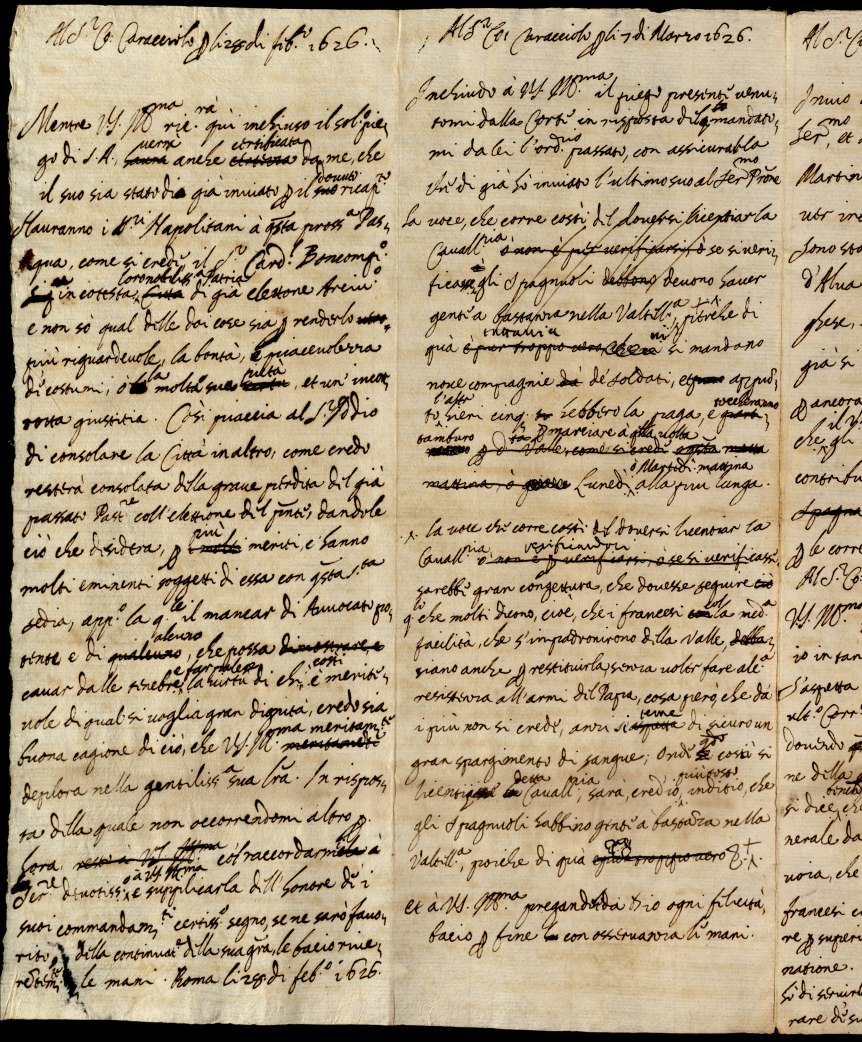 Al S.r Co: Caracciolo p li 28 di feb.o 1626.
Mentre V.S. Ill.ma rice.rà quì inchiuso il sol.o pie-
go di S.A., verrà anche certificata da me, che
il suo sia stato di già inviato p il dovuto ricap.o
Hauranno i SS.ri Napolitani à q̃sta pross.a Pas-
qua, come si crede il S.r Card.l Boncomp.o
in cotesta Nobiliss.a Patria di già elettone Arciv.o
e non sò qual delle doi cose sia p renderlo
più riguardevole, la bontà, e piacevolezza
di costumi, ò la molta sua pietà, et un' incor-
rotta giustitia. Così piaccia al S.r Iddio
di consolare la Città in altro, come credo
resterà consolata della grave perdita del già
passato Past.re coll' elettione del p̃nte, dandole
ciò che desidera, p più meriti, e hanno
molti eminenti soggetti di essa con q̃sta S.ta
sedia, app.o la q.le il mancar di Avvocato po-
tente e di alcuno, che possa
cavar dalle tenebre, e far palese la virtù di chi costì è meriti-
vole di qual si voglia gran dignità, credo sia
buona cagione di ciò, che V.S. Ill.ma meritam.te
deplora nella gentiliss.a sua l̃ra. In rispos-
ta della quale non occorrendomi altro p
hora, col raccordarmele à V.S. Ill.ma
Ser.re devotiss.o e supplicarla dell' honore de i
suoi commandam.ti, certiss.o segno, se ne sarò favo-
rito, della continuat.e della sua gr̃a, le bacio rive-
rentem.te le mani. Roma li 28 di feb.o 1626.
Al S.r Co: Caracciolo p li 7 di Marzo 1626.
Inchiudo à V.S. Ill.ma il piego presente venu-
tomi dalla Corte in risposta del mandato-
mi da lei l'ord.rio passato, con assicurarla
che di già hò inviato l'ultimo suo al Ser.mo Prñe
La voce, che corre costì del doversi licentiar la
Cavall.ria ò non è p verificarsi, ò se si veri-
ficasse, gli Spagnuoli devono haver
gente a bastanza nella Valtell.a, poiche di
quà tuttavia si mandano
nove compagnie de' soldati, appun-
to hieri cinq. hebbero la paga, e
tamburo p marciare à q̃lla volta
ò Martedì mattina
Lunedì, alla più lunga.
la voce che corre costì del doversi licentiar la
Cavall.ria verificandosi
sarebbe gran congettura, che dovesse seguire
q.lo che molti dicono, cioe, che i francesi col la med.a
facilità, che s'impadronirono della Valle,
siano anche p restituirla, senza voler fare alc.a
resistenza all' armi del Papa, cosa però, che da
i più non si crede, anzi si teme di sicuro un
gran spargimento di sangue; Onde costì si
detta Cavall.ria, sarà, cred' io, piutosto inditio, che
gli Spagnuoli habbino gente a bastanza nella
Valtell.a, poiche di quà
Et à V.S. Ill.ma pregando da Dio ogni felicità,
bacio p fine con osservanza le mani.
Al S.r Co
Invio
Ser.mo, et
Martin
ver in
sono sta
d'Alva
ghese,
già si
p ancora
che gli
contribu
Spagna
p le corr
Al S.r Co:
V.S. Ill.ma
io in tan
S'aspetta
ult.o Corr
dovendo
ne della
si dice, che
nerale da
voia, che
francesi c
re p superi
natione.
rare de su